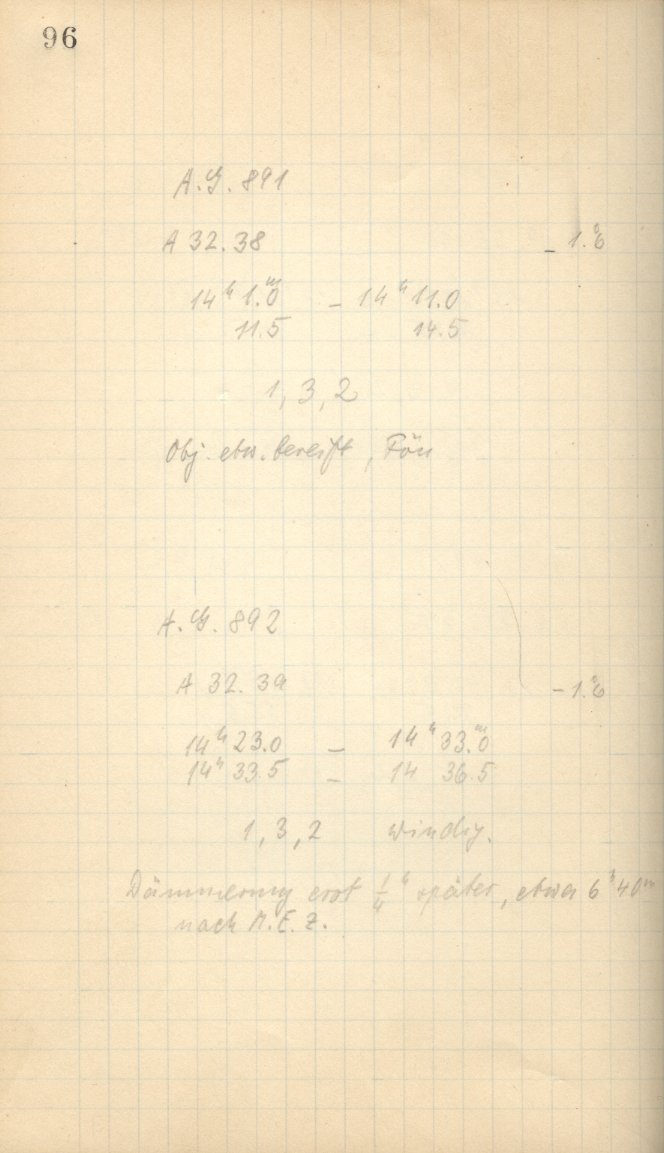 96
A.G. 891
A 32.38 - 1.°6
14ʰ 1.ᵐ0 - 14ʰ 11.0
11.5 14.5
1, 3, 2
Obj. etw. bereift, Fön
A.G. 892
A 32.39 - 1.°6
14ʰ 23.0 - 14ʰ 33.ᵐ0
14ʰ 33.5 - 14 36.5
1, 3, 2 windig.
Dämmerung erst 1/4ʰ später, etwa 6ʰ40ᵐ
nach M.E.Z.